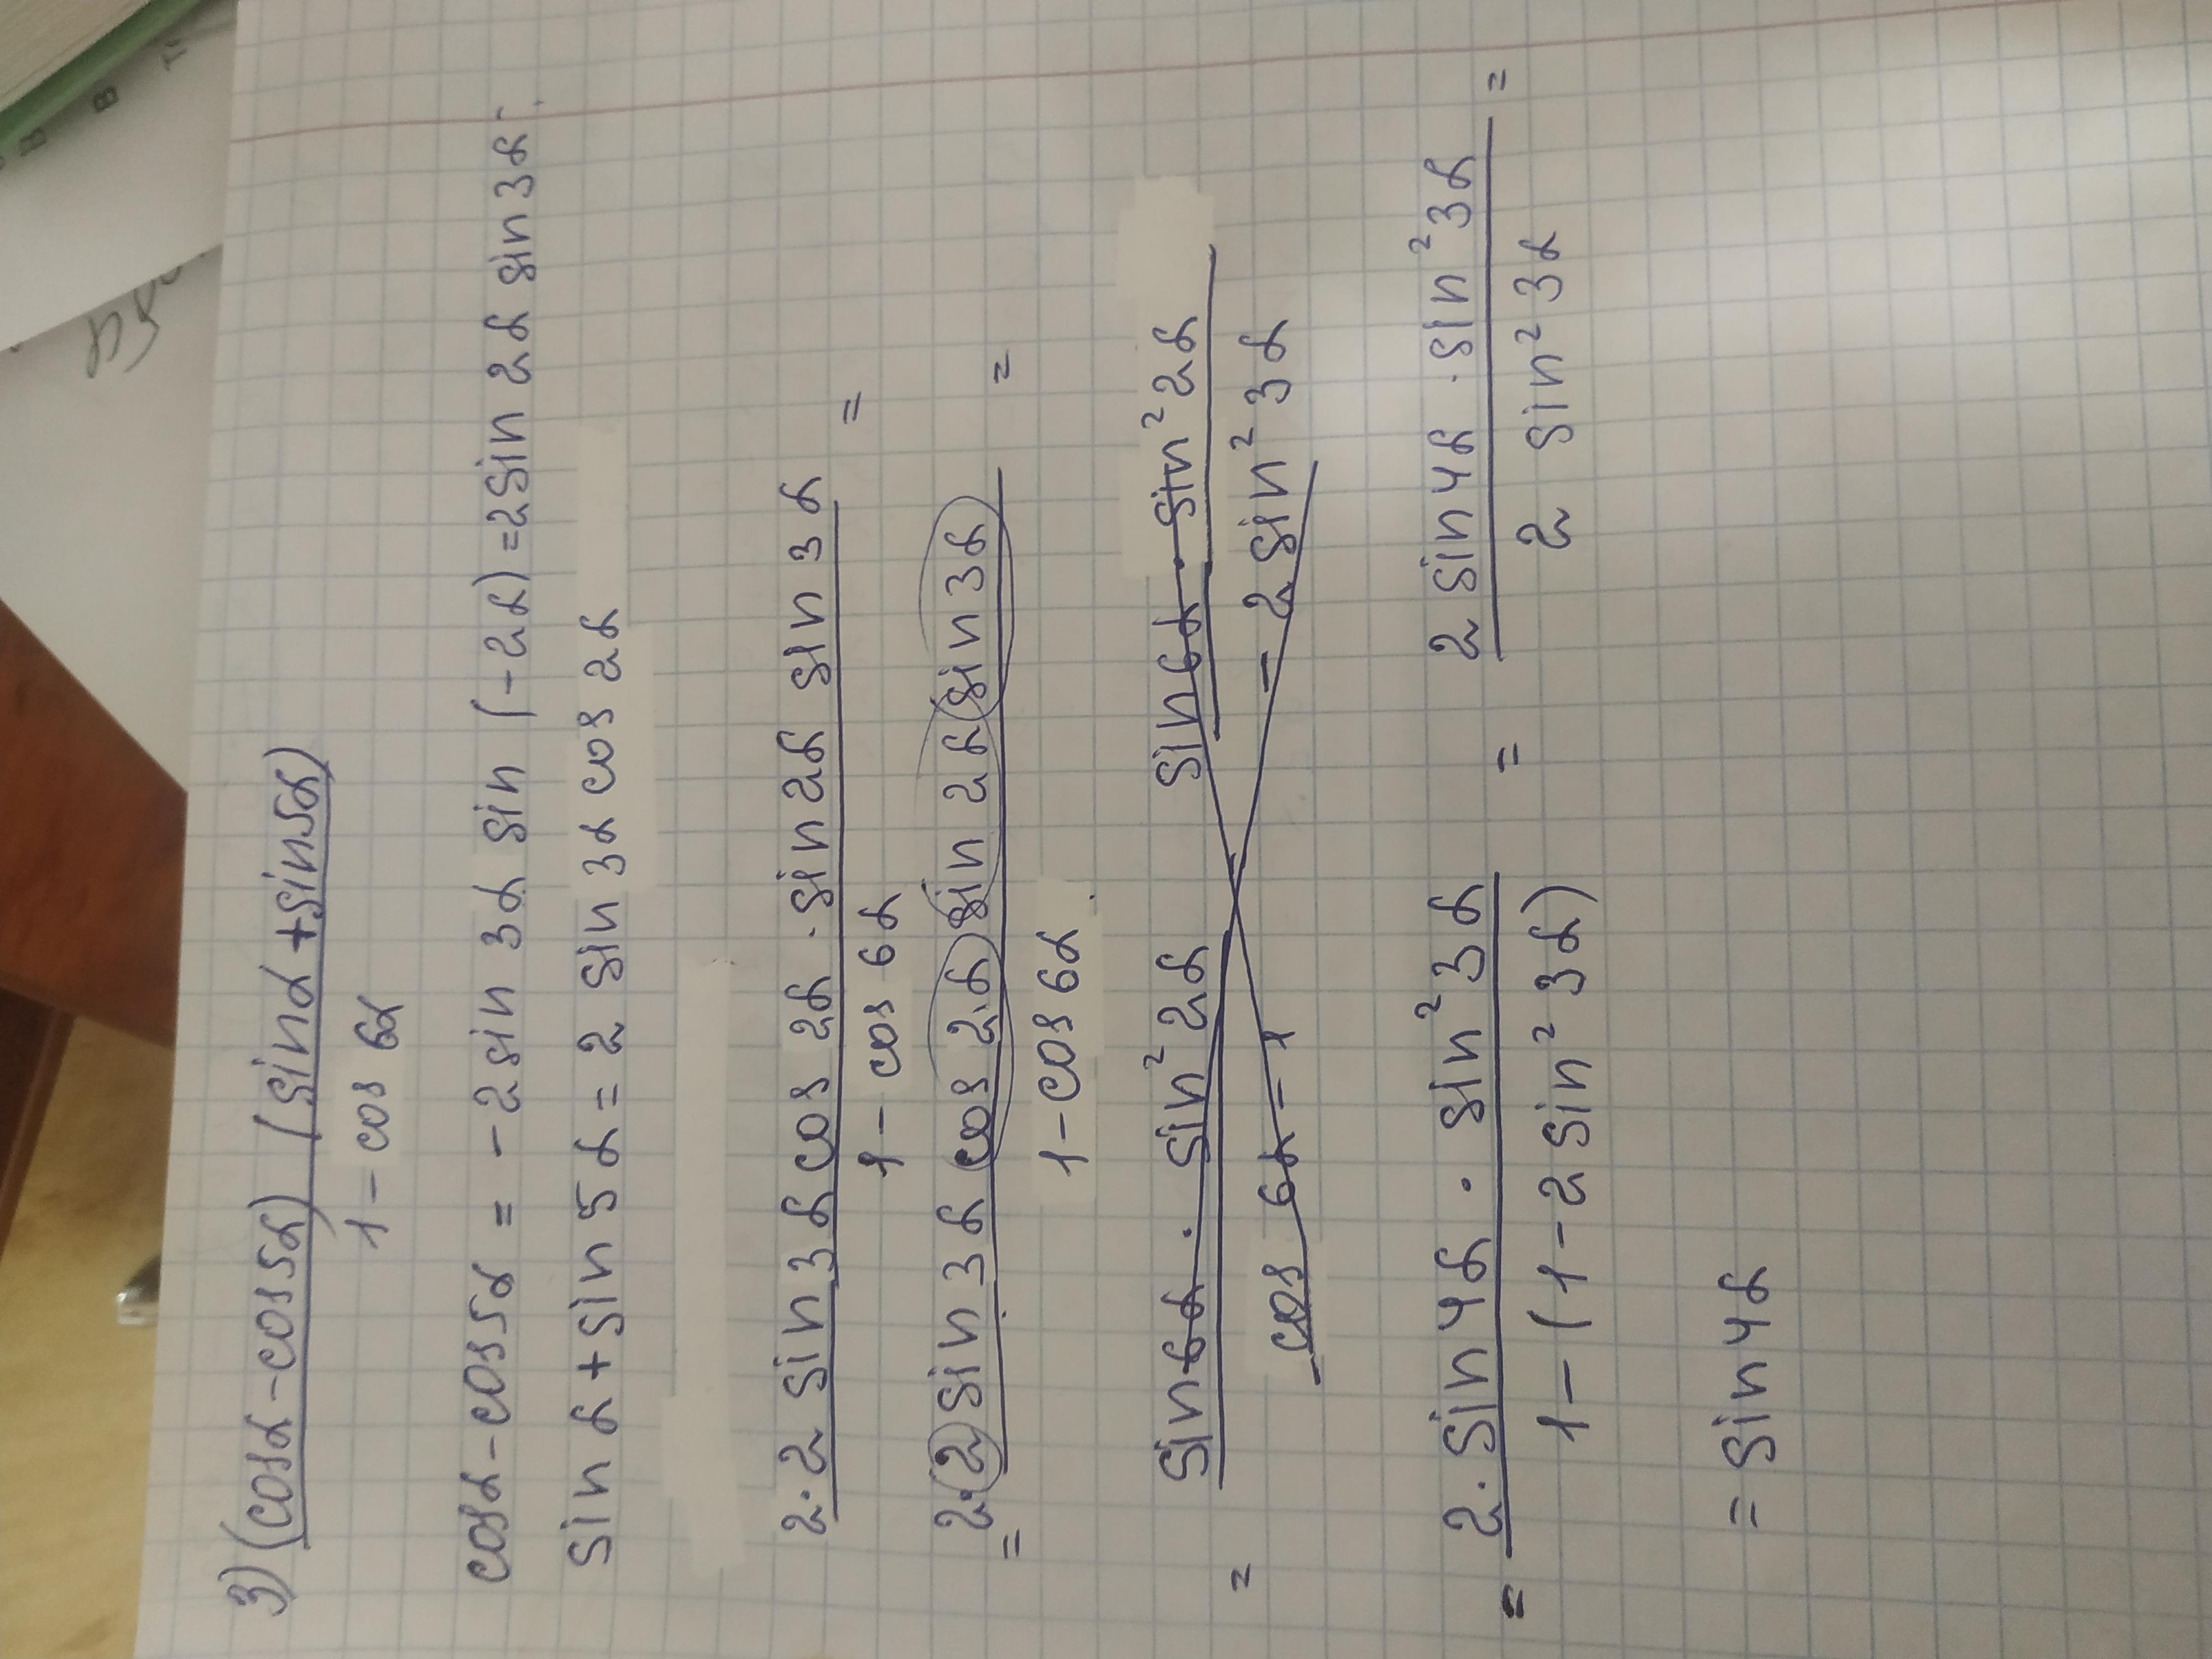 3) (cosα-cos5α) (sinα+sin5α)
1 - cos 6α
cosα-cos5α = -2sin 3α sin (-2α) = 2sin 2α sin 3α.
sin α + sin 5 α = 2 sin 3α cos 2α
2·2 sin 3α cos 2α · sin 2α sin 3α =
1 - cos 6α
= 2·2 sin 3α cos 2α sin 2α sin 3α =
1 - cos 6α
= sin 6α · sin² 2α sin 6α · sin² 2α
cos 6α - 1 - 2 sin² 3α
= 2 · sin 4α · sin² 3α = 2 sin 4α · sin² 3α =
1 - (1 - 2 sin² 3α) 2 sin² 3α
= sin 4α